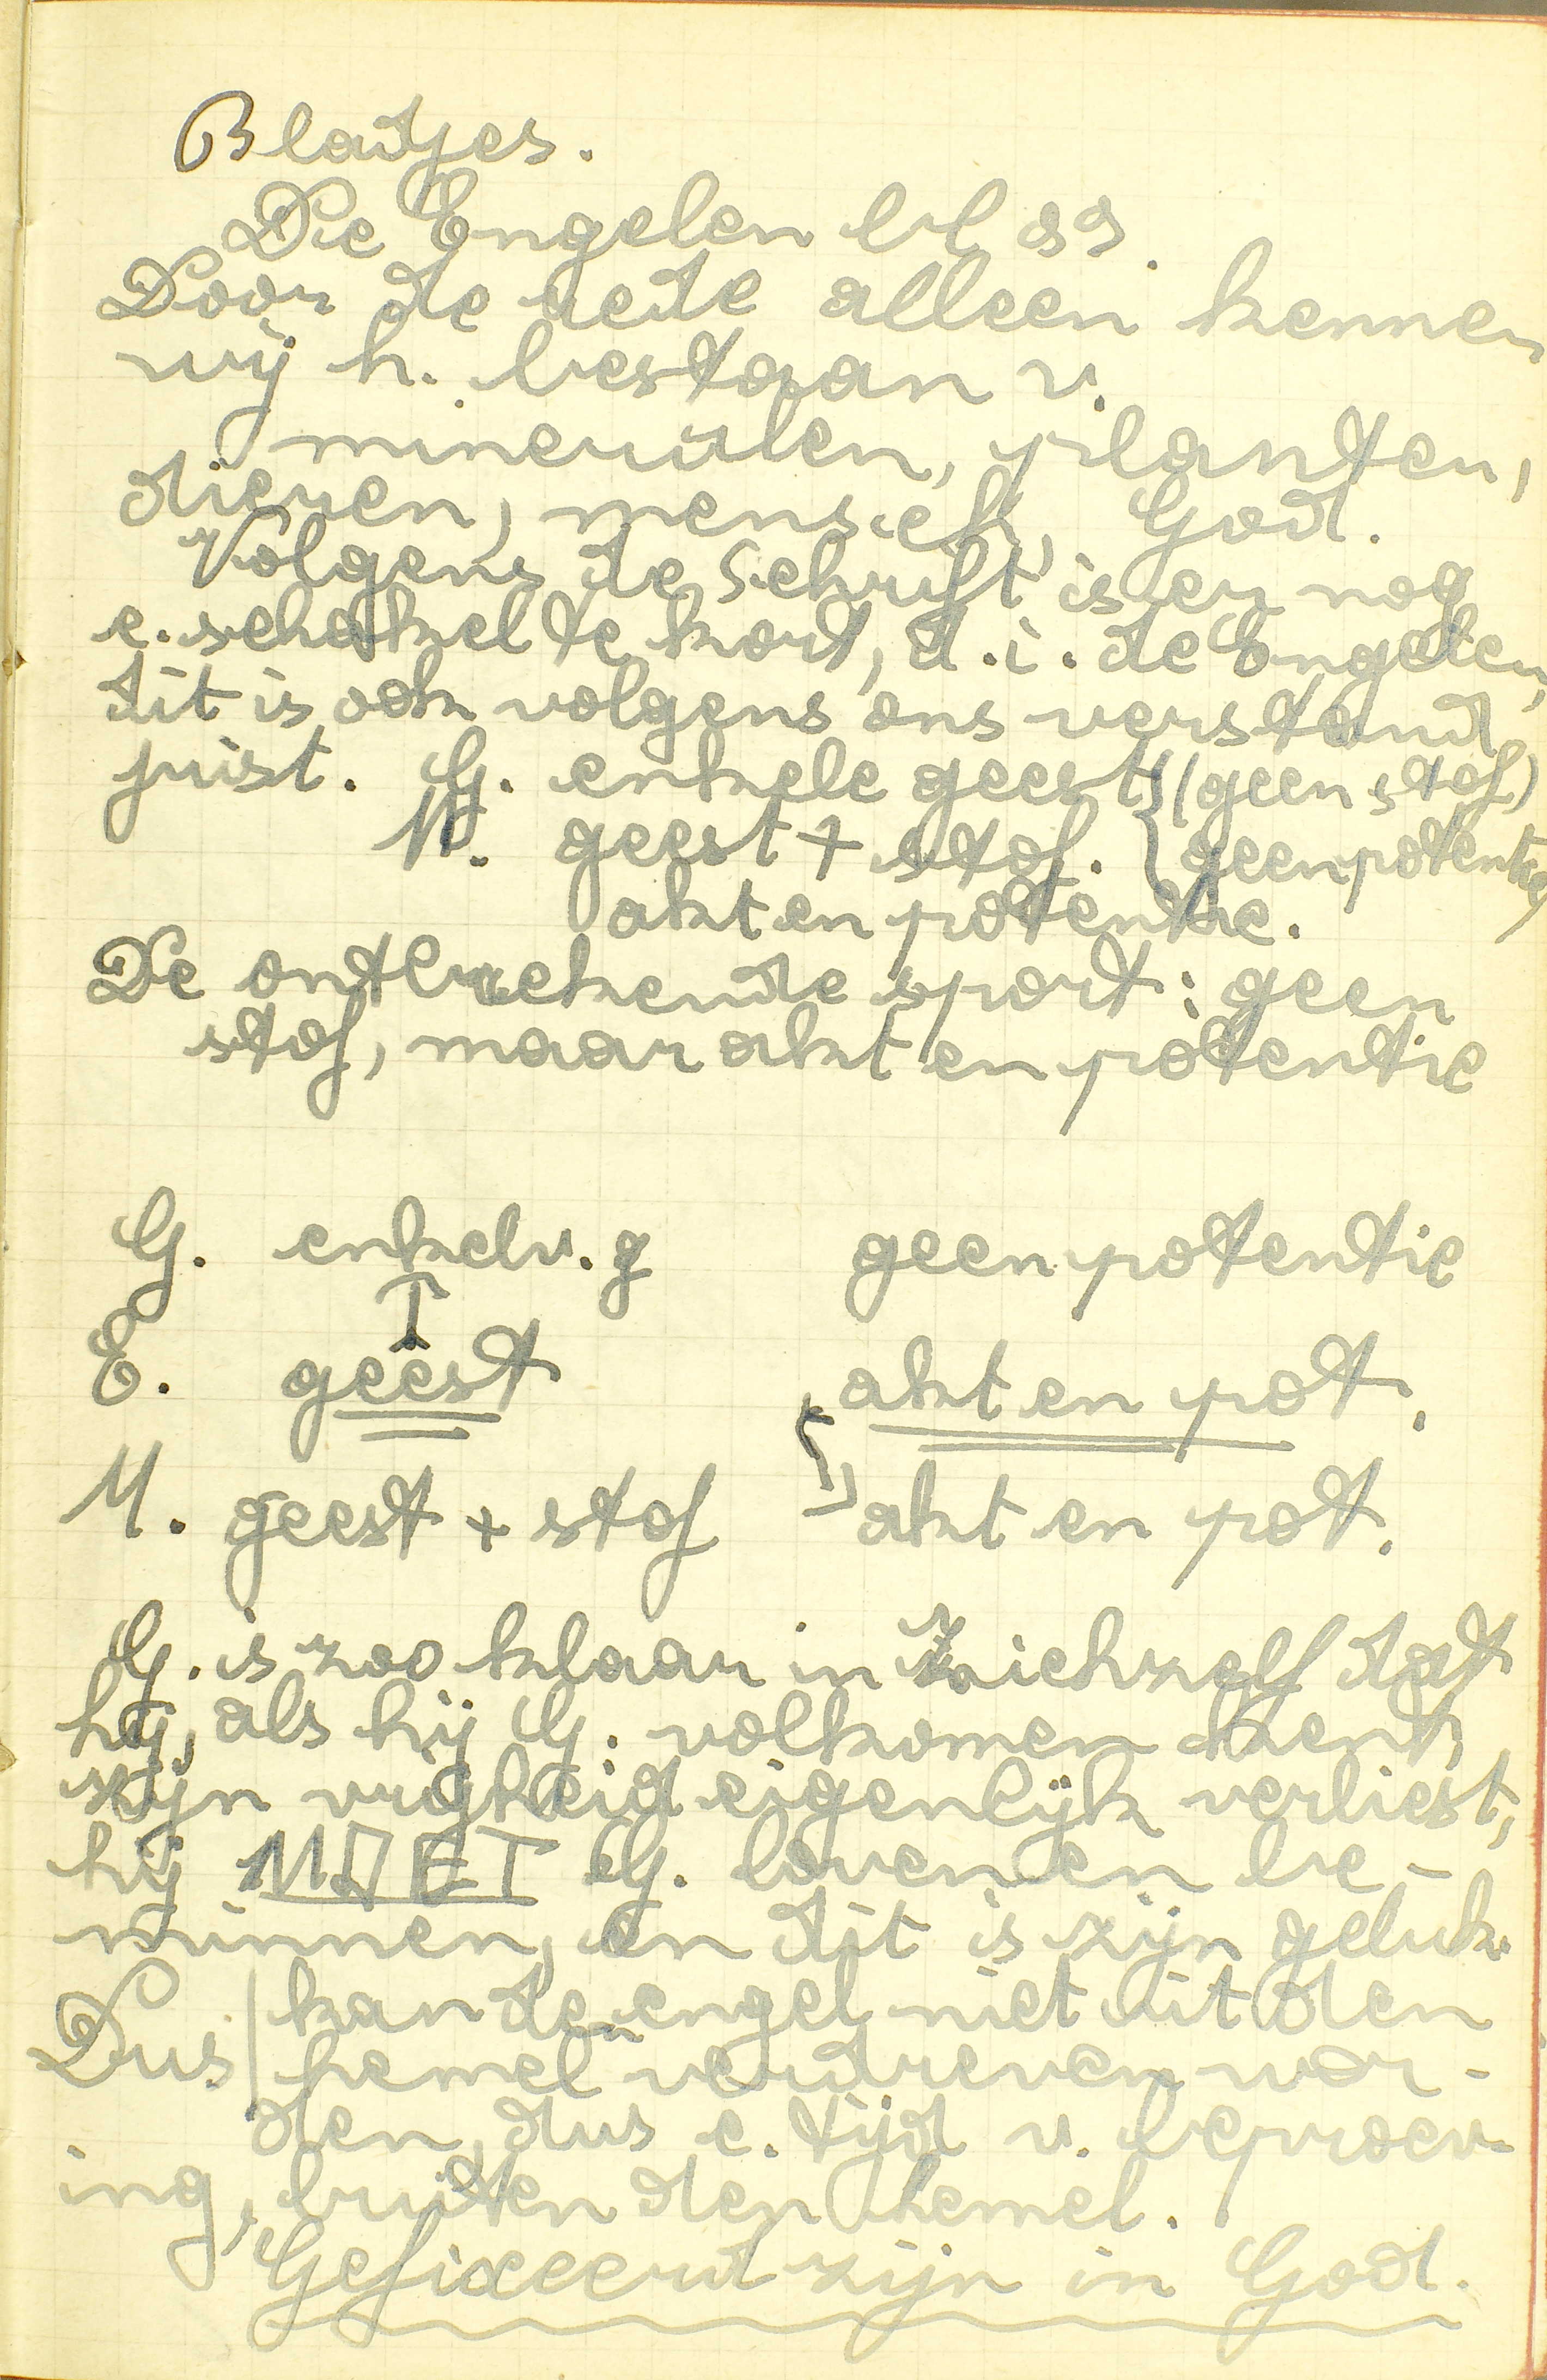 Blaadjes.
De Engelen bl 39.
Door de rede alleen kennen
wij h. bestaan v.
mineralen, planten,
dieren, mensch, God.
Volgens de Schrift is er nog
e. schakel te kort, d.i. de Engelen,
dit is ook volgens ons verstand
juist. G. enkele geest (geen stof)
M. geest + stof. { geen potentie)
akt en potentie.
De ontbrekende sport: geen
stof, maar akt en potentie
G. enkelv. g geen potentie
E. geest akt en pot.
M. geest + stof akt en pot.
G. is zoo klaar in zichzelf dat
hij, als hij G. volkomen kent,
zijn vrijheid eigenlijk verliest,
hij MOET G. loven en be-
minnen, en dit is zijn geluk.
Dus kan de engel niet uit den
hemel verdreven wor-
den, dus e. tijd v. beproev-
ing, buiten den hemel.
Gefixeerd zijn in God.